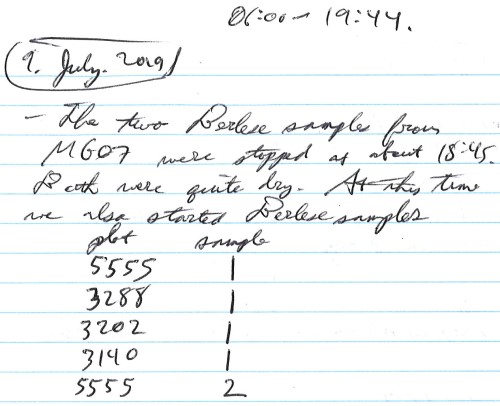 06:00 - 19:44.
9. July. 2019
- The two Berlese samples from
MG07 were stopped at about 18:45.
Both were quite dry. At this time
we also started Berlese samples
plot sample
5555 1
3288 1
3202 1
3140 1
5555 2